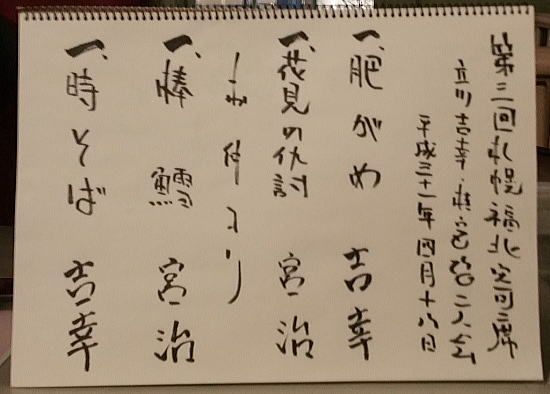 第三回札幌福北寄席
立川吉幸・桂宮治二人会
平成三十一年四月十八日
一、肥がめ 吉幸
一、花見の仇討 宮治
お仲入り
一、棒鱈 宮治
一、時そば 吉幸